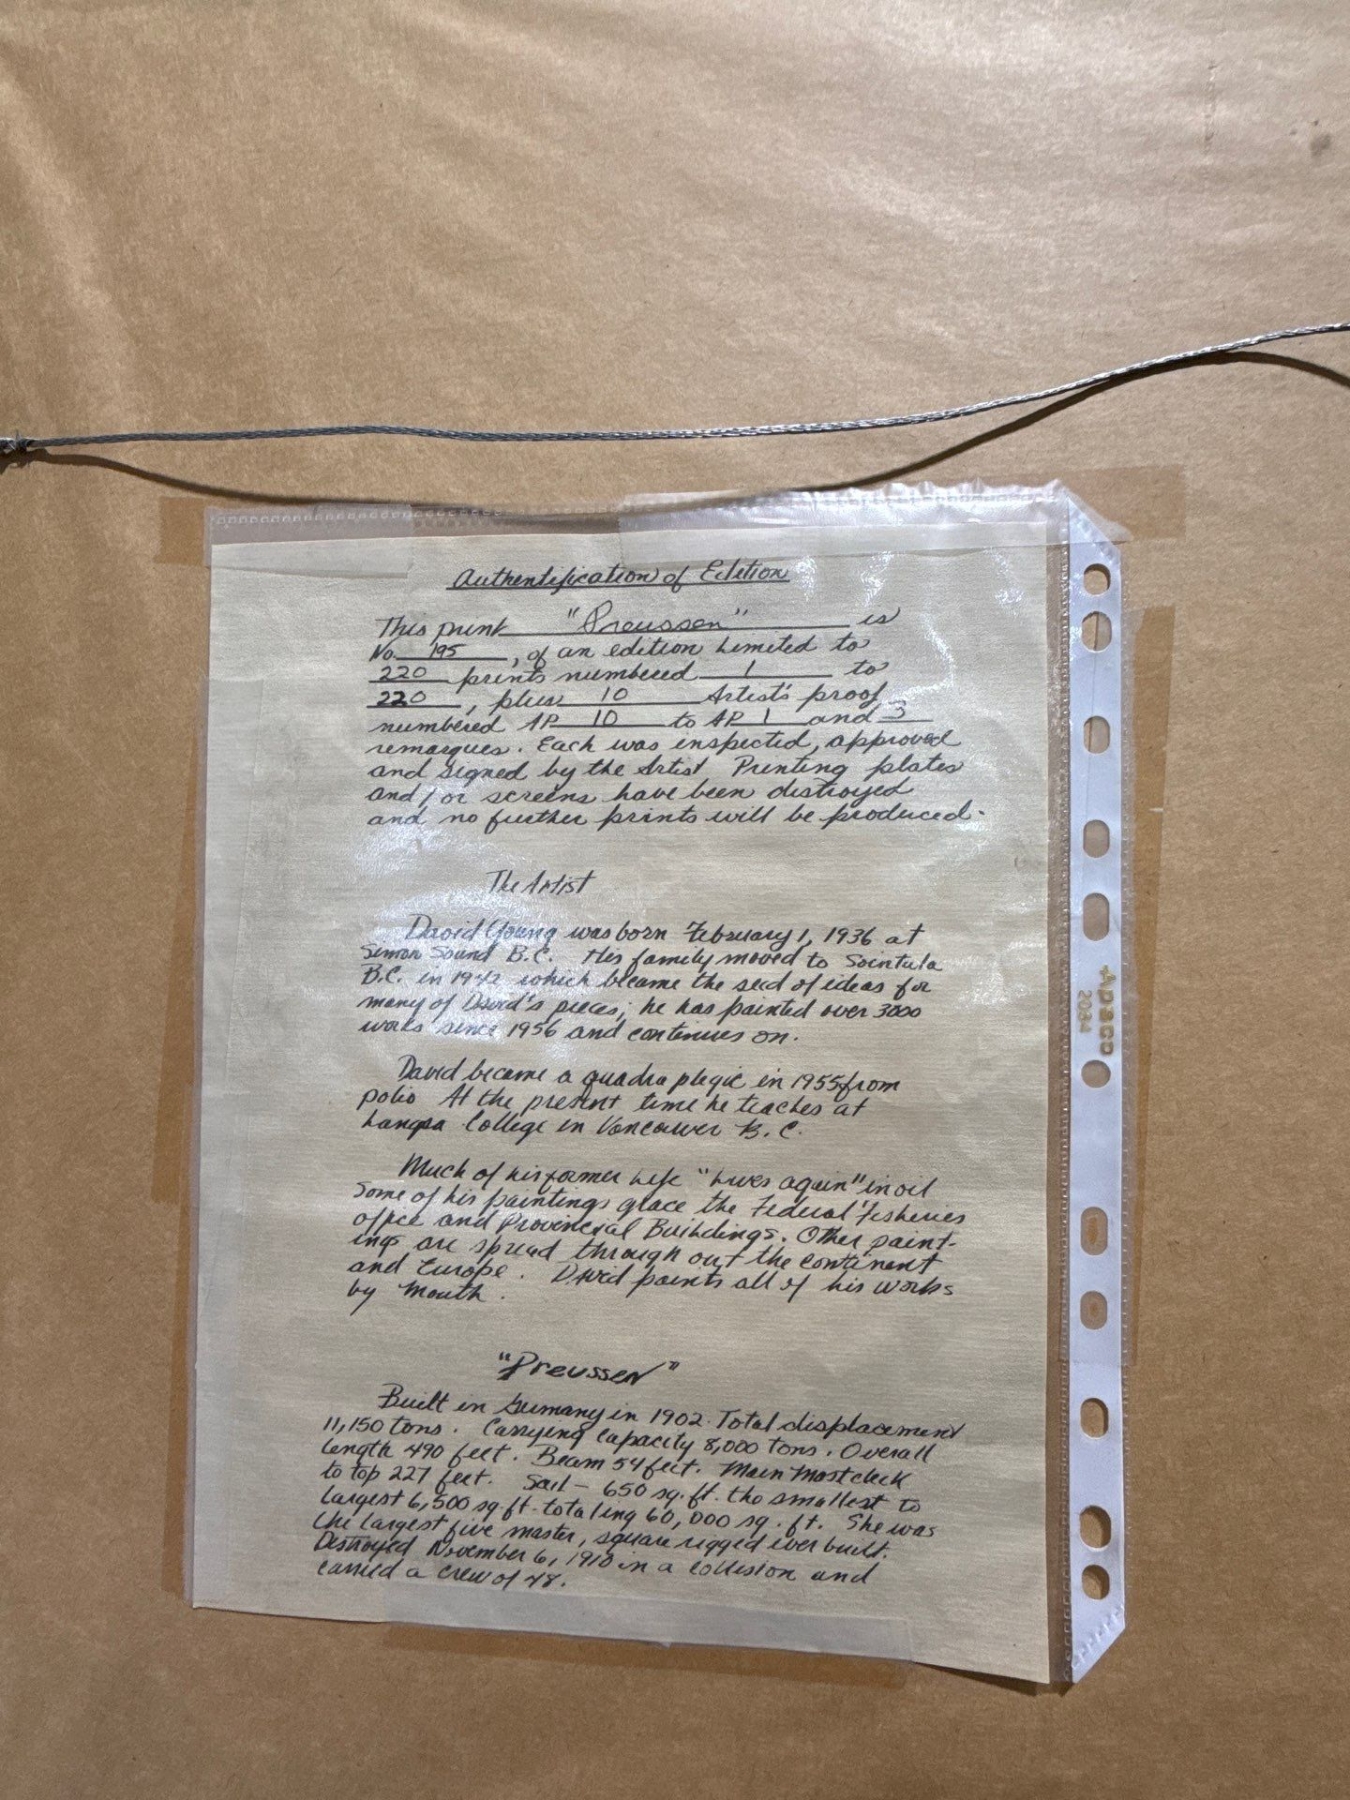 Authentification of Edition
This print "Preussen" is
No. 195, of an edition Limited to
220 prints numbered 1 to
220, plus 10 Artist's proof
numbered AP 10 to AP 1 and 3
remarques. Each was inspected, approved
and signed by the Artist Printing plates
and/or screens have been distroyed
and no further prints will be produced.
The Artist
David Young was born February 1, 1936 at
Simon Sound B.C. His family moved to Sointula
B.C. in 1942 which became the seed of ideas for
many of David's pieces; he has painted over 3000
works since 1956 and continues on.
David became a quadraplegic in 1955 from
polio At the present time he teaches at
Langra College in Vancouver B.C.
Much of his former Life "Lives again" in oil
Some of his paintings grace the Federal Fisheries
office and Provincial Buildings. Other paint-
ings are spread through out the continent
and Europe. David paints all of his works
by Mouth.
"Preussen"
Built in Germany in 1902. Total displacement
11,150 tons. Carrying Capacity 8,000 tons. Overall
Length 490 feet. Beam 54 feet. Main Mast deck
to top 227 feet. Sail - 650 sq. ft. the smallest to
Largest 6,500 sq. ft. totaling 60,000 sq. ft. She was
the Largest five master, square rigged ever built.
Destroyed November 6, 1910 in a collision and
carried a crew of 48.
Apasco
2034